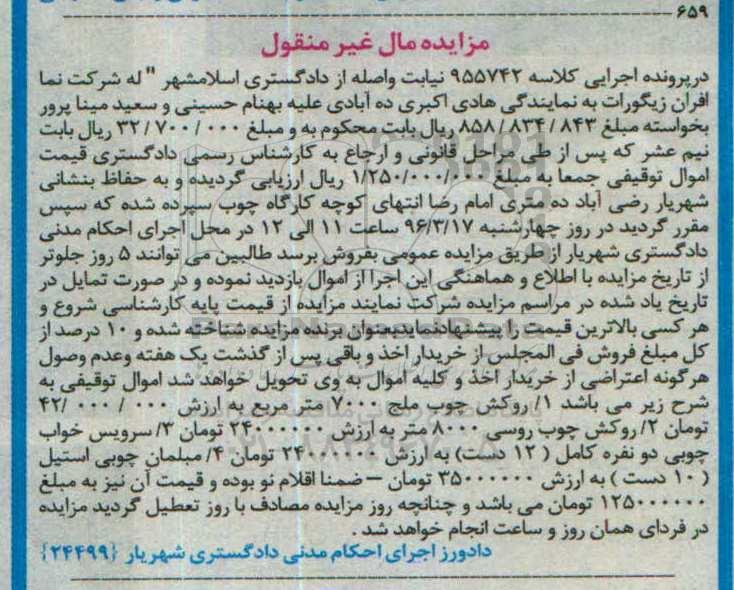 ۶۵۹
مزایده مال غیر منقول
درپرونده اجرایی کلاسه ۹۵۵۷۴۲ نیابت واصله از دادگستری اسلامشهر " له شرکت نما
افران زیگورات به نمایندگی هادی اکبری ده آبادی علیه بهنام حسینی و سعید مینا پرور
بخواسته مبلغ ۸۵۸/۸۳۴/۸۴۳ ریال بابت محکوم به و مبلغ ۳۲/۷۰۰/۰۰۰ ریال بابت
نیم عشر که پس از طی مراحل قانونی و ارجاع به کارشناس رسمی دادگستری قیمت
اموال توقیفی جمعا به مبلغ ۱/۲۵۰/۰۰۰/۰۰۰ ریال ارزیابی گردیده و به حفاظ بنشانی
شهریار رضی آباد ده متری امام رضا انتهای کوچه کارگاه چوب سپرده شده که سپس
مقرر گردید در روز چهارشنبه ۹۶/۳/۱۷ ساعت ۱۱ الی ۱۲ در محل اجرای احکام مدنی
دادگستری شهریار از طریق مزایده عمومی بفروش برسد طالبین می توانند ۵ روز جلوتر
از تاریخ مزایده با اطلاع و هماهنگی این اجرا از اموال بازدید نموده و در صورت تمایل در
تاریخ یاد شده در مراسم مزایده شرکت نمایند مزایده از قیمت پایه کارشناسی شروع و
هر کسی بالاترین قیمت را پیشنهادنمایدبعنوان برنده مزایده شناخته شده و ۱۰ درصد از
کل مبلغ فروش فی المجلس از خریدار اخذ و باقی پس از گذشت یک هفته وعدم وصول
هرگونه اعتراضی از خریدار اخذ و کلیه اموال به وی تحویل خواهد شد اموال توقیفی به
شرح زیر می باشد ۱/ روکش چوب ملج ۷۰۰۰ متر مربع به ارزش ۰۰۰ / ۰۰۰ /۴۲
تومان ۲/ روکش چوب روسی ۸۰۰۰ متر به ارزش ۲۴۰۰۰۰۰۰ تومان ۳/ سرویس خواب
چوبی دو نفره کامل ( ۱۲ دست) به ارزش ۲۴۰۰۰۰۰۰ تومان ۴/ مبلمان چوبی استیل
( ۱۰ دست ) به ارزش ۳۵۰۰۰۰۰۰ تومان – ضمنا اقلام نو بوده و قیمت آن نیز به مبلغ
۱۲۵۰۰۰۰۰۰ تومان می باشد و چنانچه روز مزایده مصادف با روز تعطیل گردید مزایده
در فردای همان روز و ساعت انجام خواهد شد .
دادورز اجرای احکام مدنی دادگستری شهریار {۲۴۴۹۹}